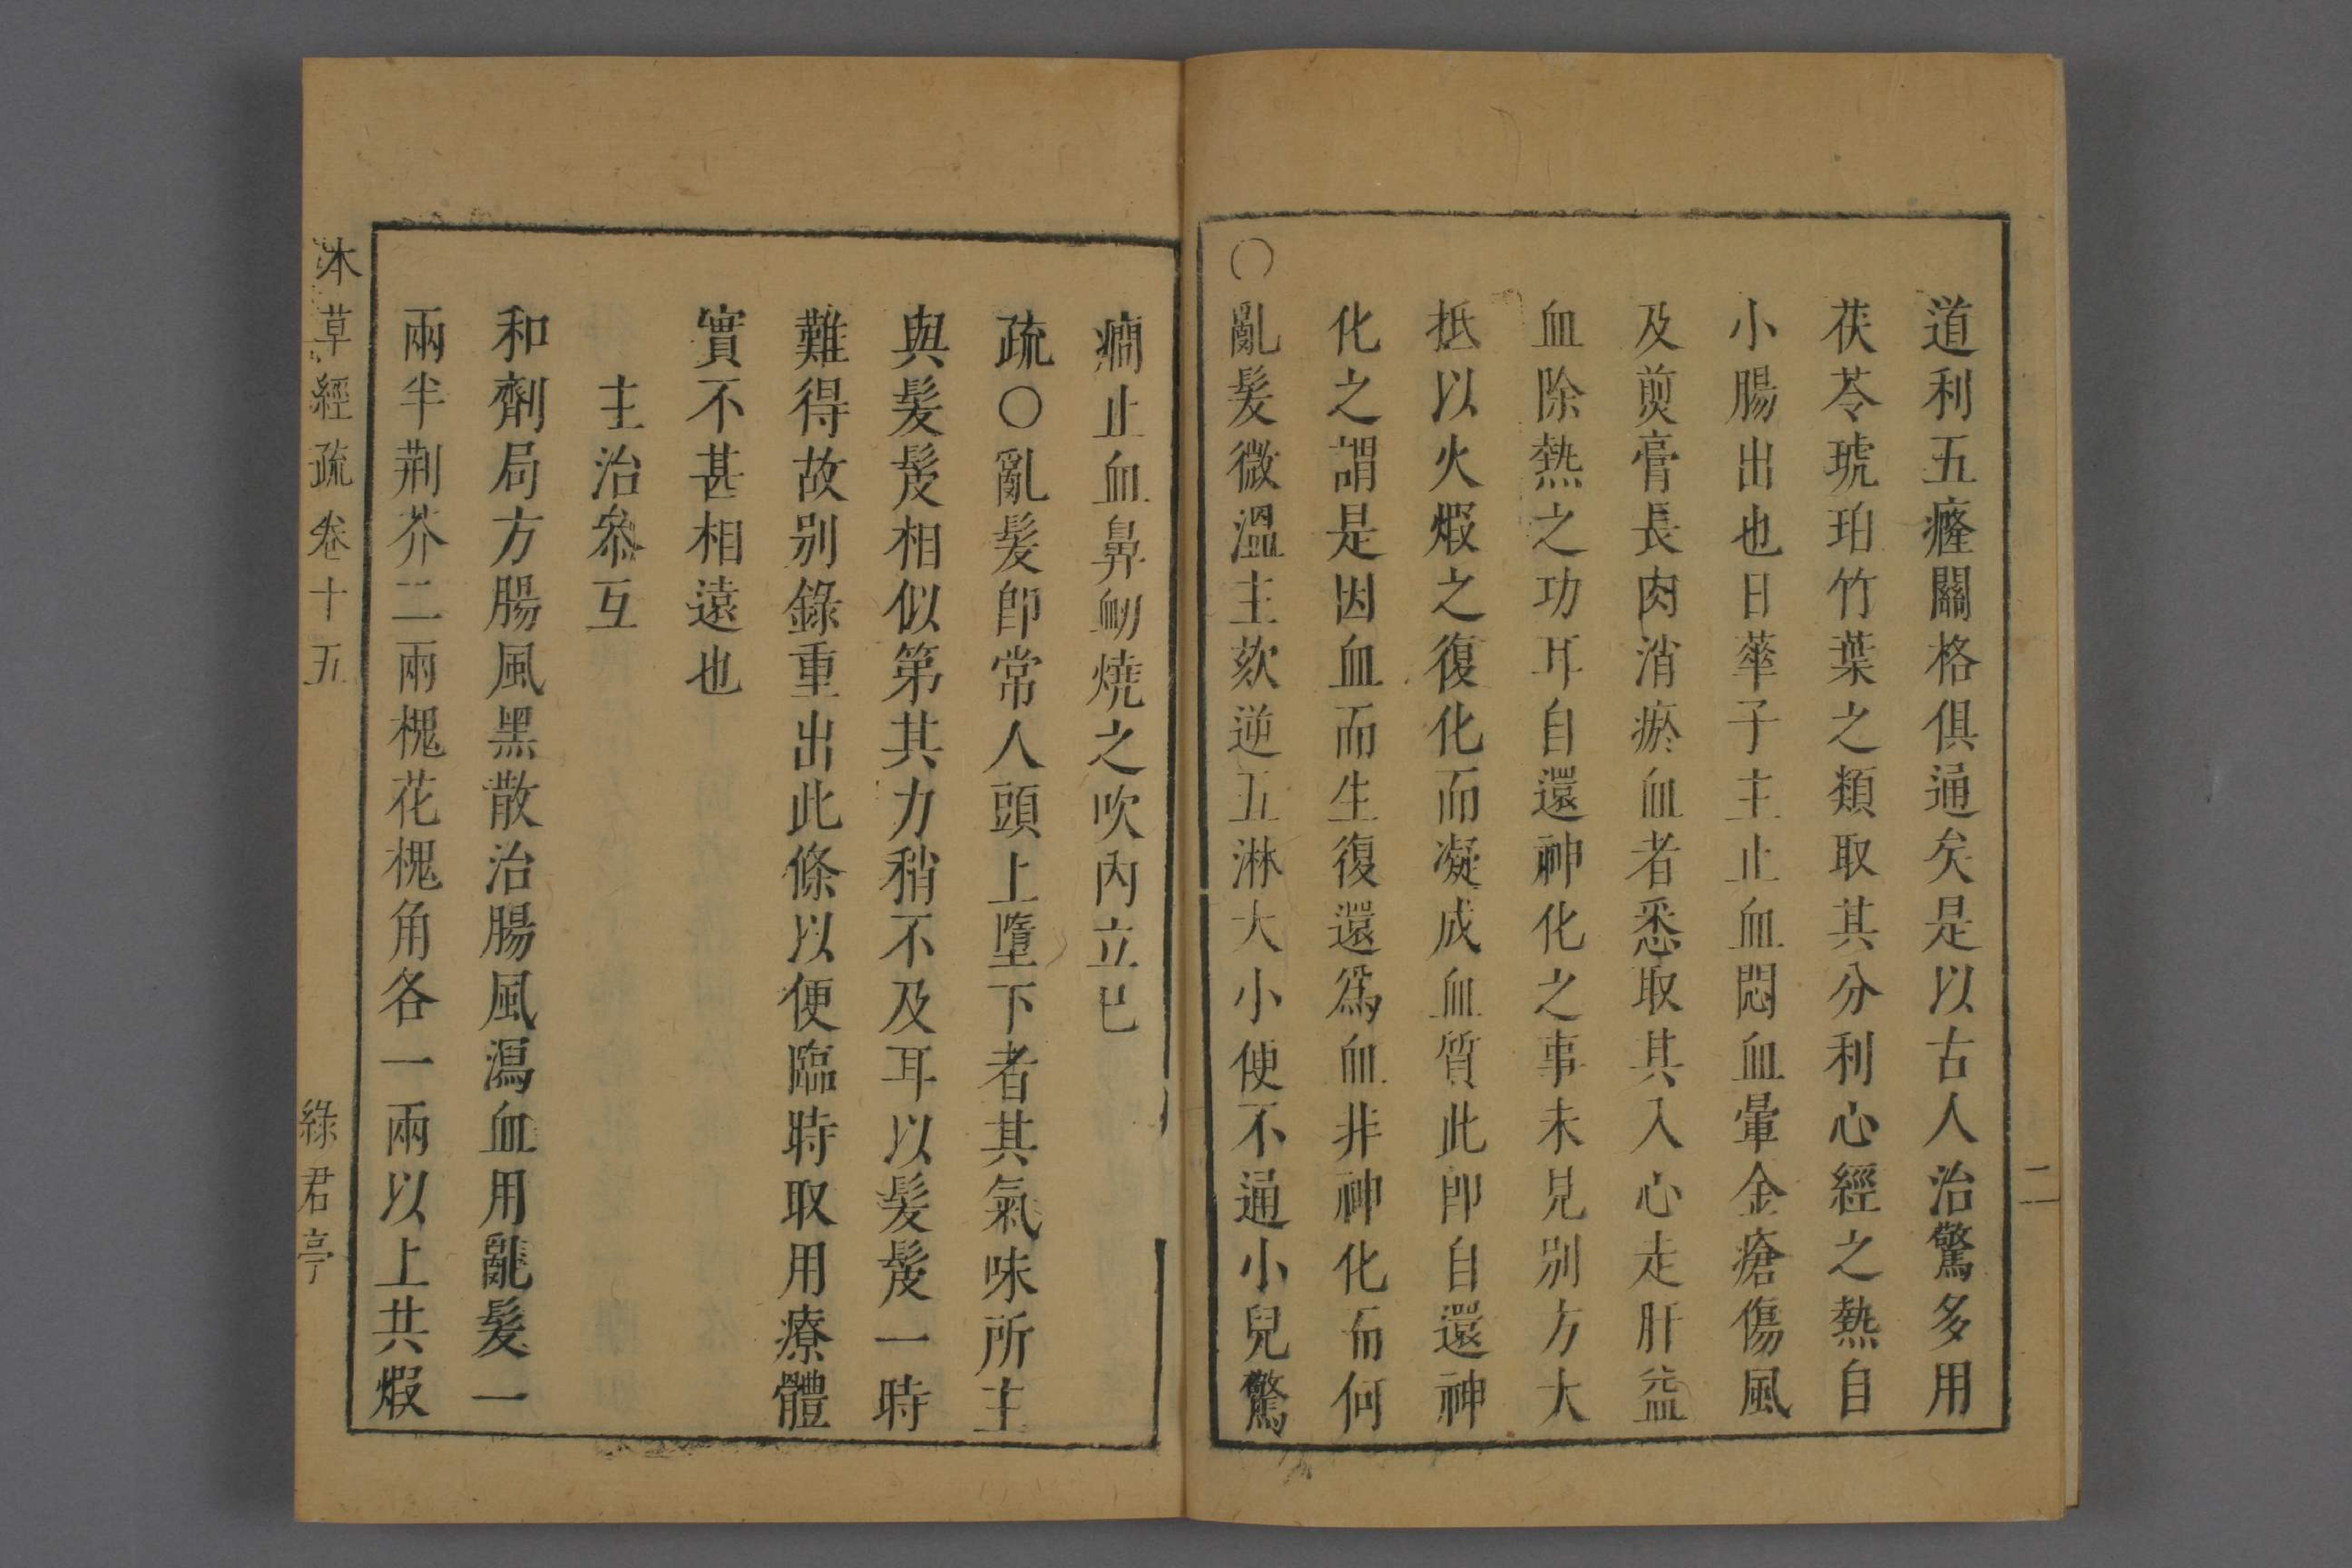 道利五癃關格俱通矣是以古人治驚多用
茯苓琥珀竹葉之類取其分利心經之熱自
小腸出也日華子主止血悶血暈金瘡傷風
及煎膏長肉消瘀血者悉取其入心走肝益
血除熱之功耳自還神化之事未見別方大
抵以火煅之復化而凝成血質此卽自還神
化之謂是因血而生復還爲血非神化而何
○亂髮微溫主欬逆五淋大小便不通小兒驚
二
癎止血鼻衄燒之吹內立已
疏○亂髮卽常人頭上墮下者其氣味所主
與髮髲相似第其力稍不及耳以髮髲一時
難得故別錄重出此條以便臨時取用療體
實不甚相遠也
主治參互
和劑局方腸風黑散治腸風瀉血用亂髮一
兩半荆芥二兩槐花槐角各一兩以上共煅
本草經疏卷十五
綠君亭